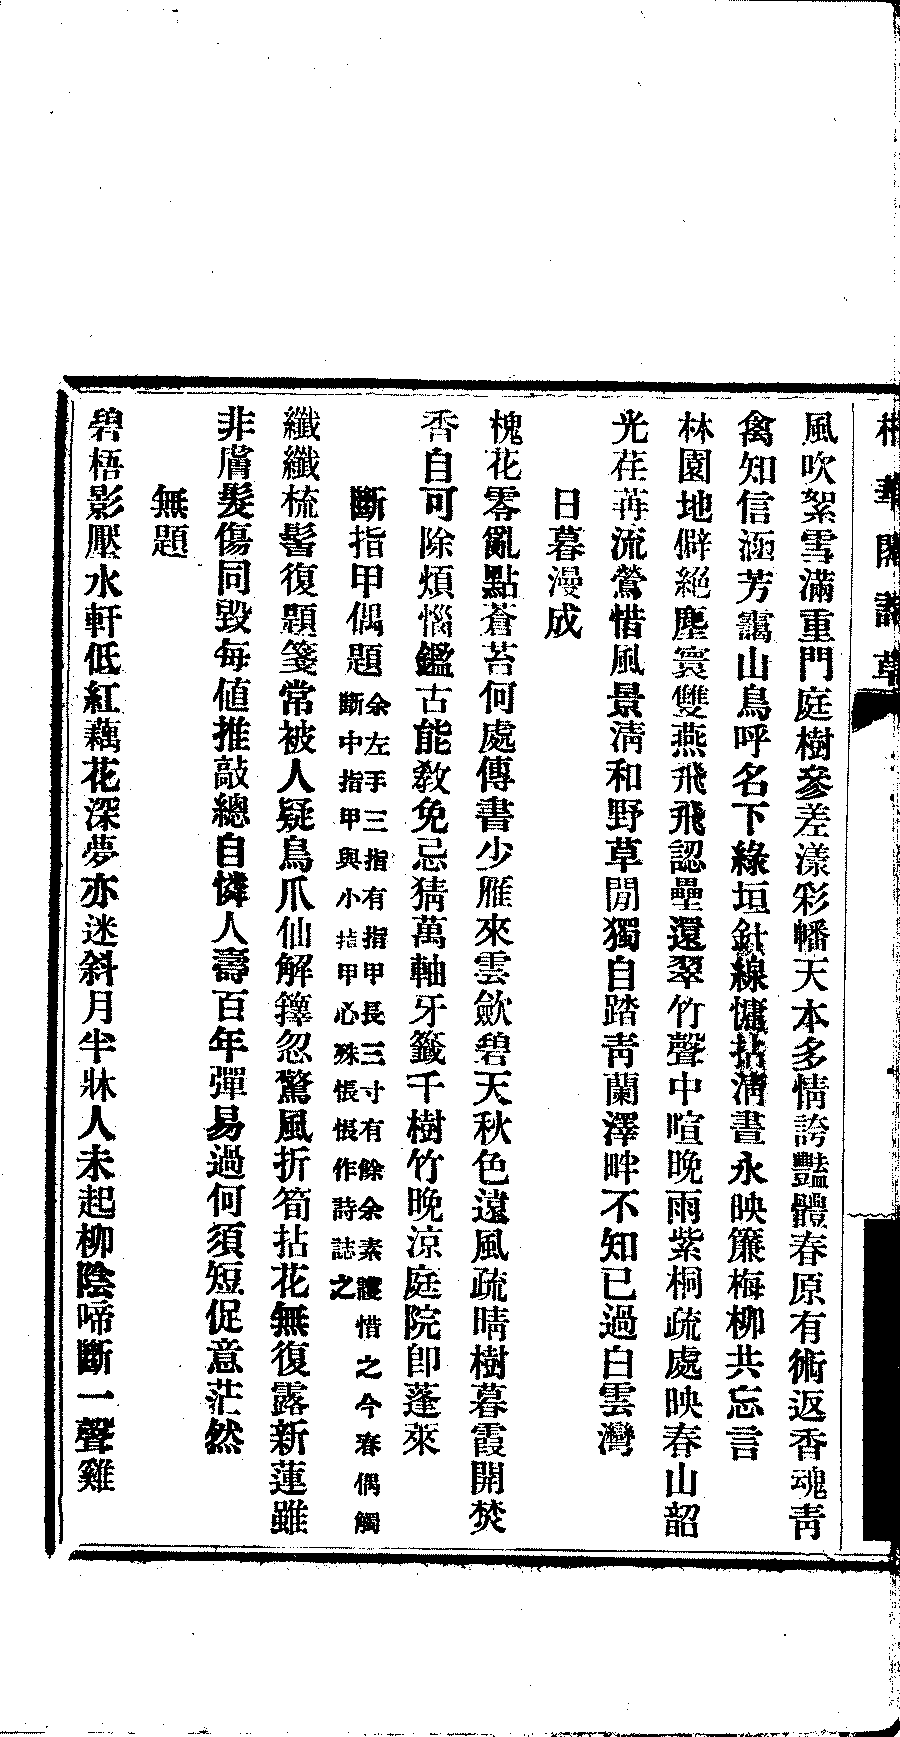 風吹絮雪滿重門庭樹參差漾彩幡天本多情誇豔體春原有術返香魂靑
禽知信涵芳靄山鳥呼名下綠垣針線慵拈淸晝永映簾梅柳共忘言
林園地僻絕塵寰雙燕飛飛認壘還翠竹聲中喧晚雨紫桐疏處映春山韶
光荏苒流鶯惜風景淸和野草閒獨自踏靑蘭澤畔不知已過白雲灣
日暮漫成
槐花零亂點蒼苔何處傳書少雁來雲歛碧天秋色遠風疏晴樹暮霞開焚
香自可除煩惱鑑古能敎免忌猜萬軸牙籤千樹竹晚涼庭院卽蓬來
斷指甲偶題余左手三指有指甲長三寸有餘余素護惜之今春偶觸
斷中指甲與小指甲心殊悵悵作詩誌之
纖纖梳髻復題箋常被人疑鳥爪仙解籜忽驚風折筍拈花無復露新蓮雖
非膚髮傷同毀每値推敲總自憐人壽百年彈易過何須短促意茫然
無題
碧梧影壓水軒低紅藕花深夢亦迷斜月半牀人未起柳陰啼斷一聲雞